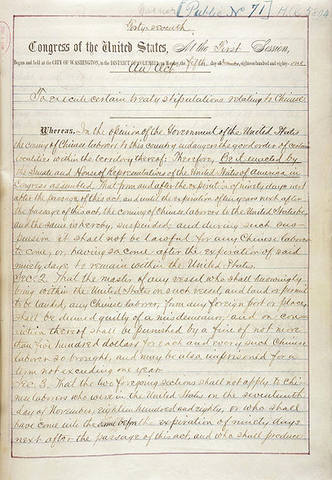 [Public No 71]
Forty seventh
Congress of the United States, At the First Session,
Begun and held at the CITY OF WASHINGTON, in the DISTRICT OF COLUMBIA, on Monday, the fifth day of December, eighteen hundred and eighty-one
An Act
To execute certain treaty stipulations relating to Chinese.
Whereas, In the opinion of the Government of the United States
the coming of Chinese laborers to this country endangers the good order of certain
localities within the territory thereof: Therefore, Be it enacted by
the Senate and House of Representatives of the United States of America in
Congress assembled, That from and after the expiration of ninety days next
after the passage of this act, and until the expiration of ten years next after
the passage of this act, the coming of Chinese laborers to the United States be,
and the same is hereby, suspended; and during such sus-
pension it shall not be lawful for any Chinese laborer
to come, or, having so come after the expiration of said
ninety days, to remain within the United States.
Sec. 2. That the master of any vessel who shall knowingly
bring within the United States on such vessel, and land or permit
to be landed, any Chinese laborer, from any foreign port or place,
shall be deemed guilty of a misdemeanor, and on con-
viction thereof shall be punished by a fine of not more
than five hundred dollars for each and every such Chinese
laborer so brought, and may be also imprisoned for a
term not exceeding one year.
Sec. 3. That the two foregoing sections shall not apply to Chi-
nese laborers who were in the United States on the seventeenth
day of November, eighteen hundred and eighty, or who shall
have come into the same before the expiration of ninety days
next after the passage of this act, and who shall produce